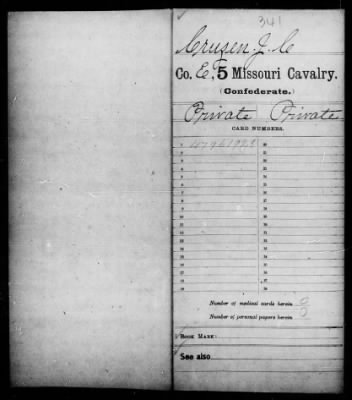 341
Crusen, J. C
Co. E, 5 Missouri Cavalry.
(Confederate.)
Private Private
CARD NUMBERS.
Number of medical cards herein 0
Number of personal papers herein 0
BOOK MARK:
See also